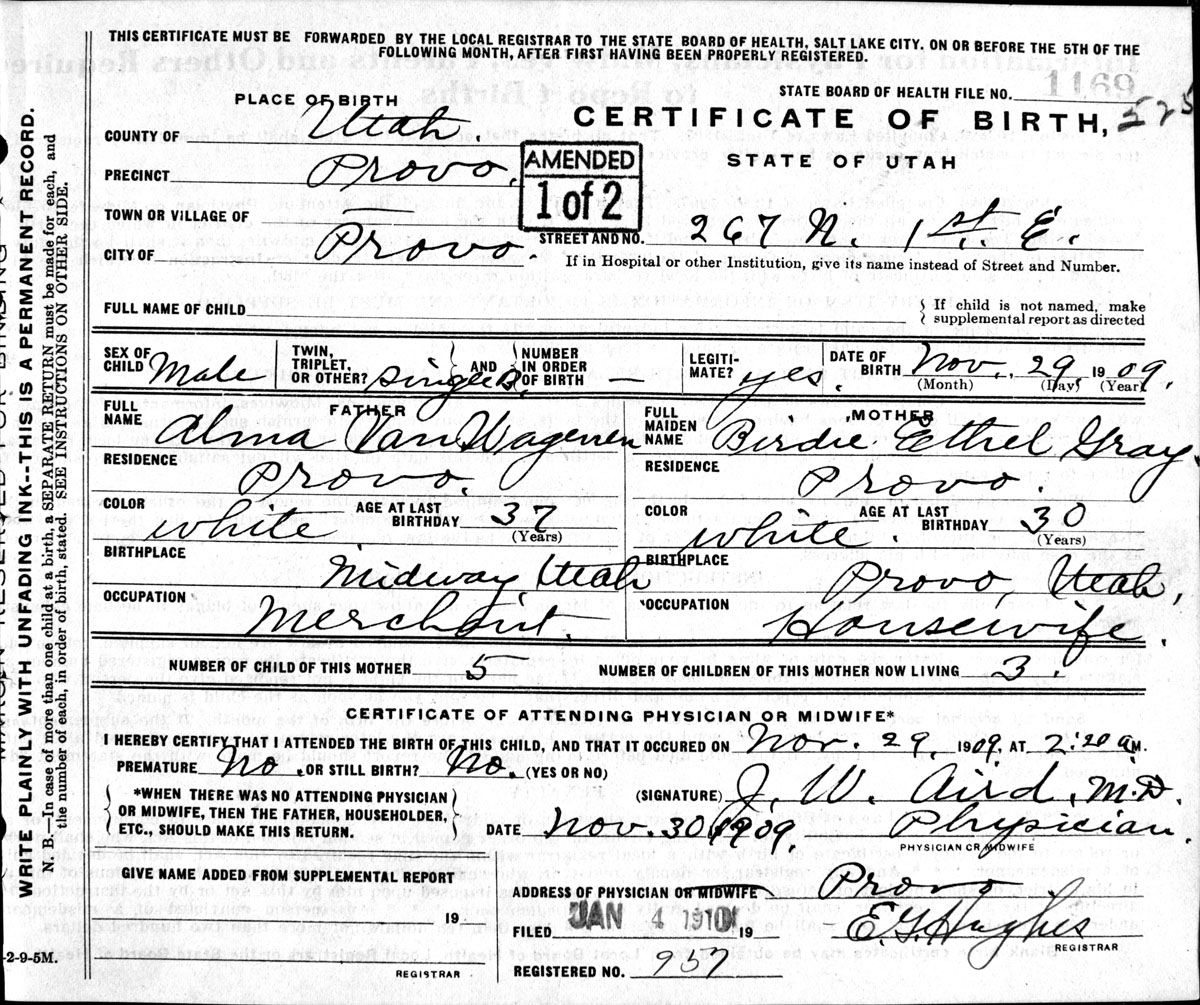 THIS CERTIFICATE MUST BE FORWARDED BY THE LOCAL REGISTRAR TO THE STATE BOARD OF HEALTH, SALT LAKE CITY, ON OR BEFORE THE 5TH OF THE
FOLLOWING MONTH, AFTER FIRST HAVING BEEN PROPERLY REGISTERED.
STATE BOARD OF HEALTH FILE NO. 1169
PLACE OF BIRTH
CERTIFICATE OF BIRTH, 525
COUNTY OF Utah
STATE OF UTAH
AMENDED
1 of 2
PRECINCT Provo.
TOWN OR VILLAGE OF
CITY OF Provo.
STREET AND NO. 267 N. 1st. E.
If in Hospital or other Institution, give its name instead of Street and Number.
FULL NAME OF CHILD
{ If child is not named, make
supplemental report as directed
SEX OF CHILD Male
TWIN, TRIPLET, OR OTHER? single
AND NUMBER IN ORDER OF BIRTH —
LEGITIMATE? yes.
DATE OF BIRTH Nov. 29 1909.
(Month) (Day) (Year)
FATHER
FULL NAME Alma Van Wagenen
MOTHER
FULL MAIDEN NAME Birdie Ethel Gray.
RESIDENCE Provo.
RESIDENCE Provo.
COLOR white AGE AT LAST BIRTHDAY 37 (Years)
COLOR white. AGE AT LAST BIRTHDAY 30 (Years)
BIRTHPLACE Midway Utah
BIRTHPLACE Provo, Utah,
OCCUPATION Merchant.
OCCUPATION Housewife.
NUMBER OF CHILD OF THIS MOTHER 5 NUMBER OF CHILDREN OF THIS MOTHER NOW LIVING 3.
CERTIFICATE OF ATTENDING PHYSICIAN OR MIDWIFE*
I HEREBY CERTIFY THAT I ATTENDED THE BIRTH OF THIS CHILD, AND THAT IT OCCURED ON Nov. 29, 1909, AT 2:20 a M.
PREMATURE No. OR STILL BIRTH? No. (YES OR NO)
*WHEN THERE WAS NO ATTENDING PHYSICIAN
OR MIDWIFE, THEN THE FATHER, HOUSEHOLDER,
ETC., SHOULD MAKE THIS RETURN.
(SIGNATURE) J. W. Aird, M.D.
DATE Nov. 30 1909. Physician
PHYSICIAN OR MIDWIFE
GIVE NAME ADDED FROM SUPPLEMENTAL REPORT
19
REGISTRAR
ADDRESS OF PHYSICIAN OR MIDWIFE Provo
FILED JAN 4 1910 19 E. G. Hughes
REGISTRAR
REGISTERED NO. 957
-2-9-5M.
WRITE PLAINLY WITH UNFADING INK--THIS IS A PERMANENT RECORD.
N. B.—In case of more than one child at a birth, a SEPARATE RETURN must be made for each, and
the number of each, in order of birth, stated. SEE INSTRUCTIONS ON OTHER SIDE.